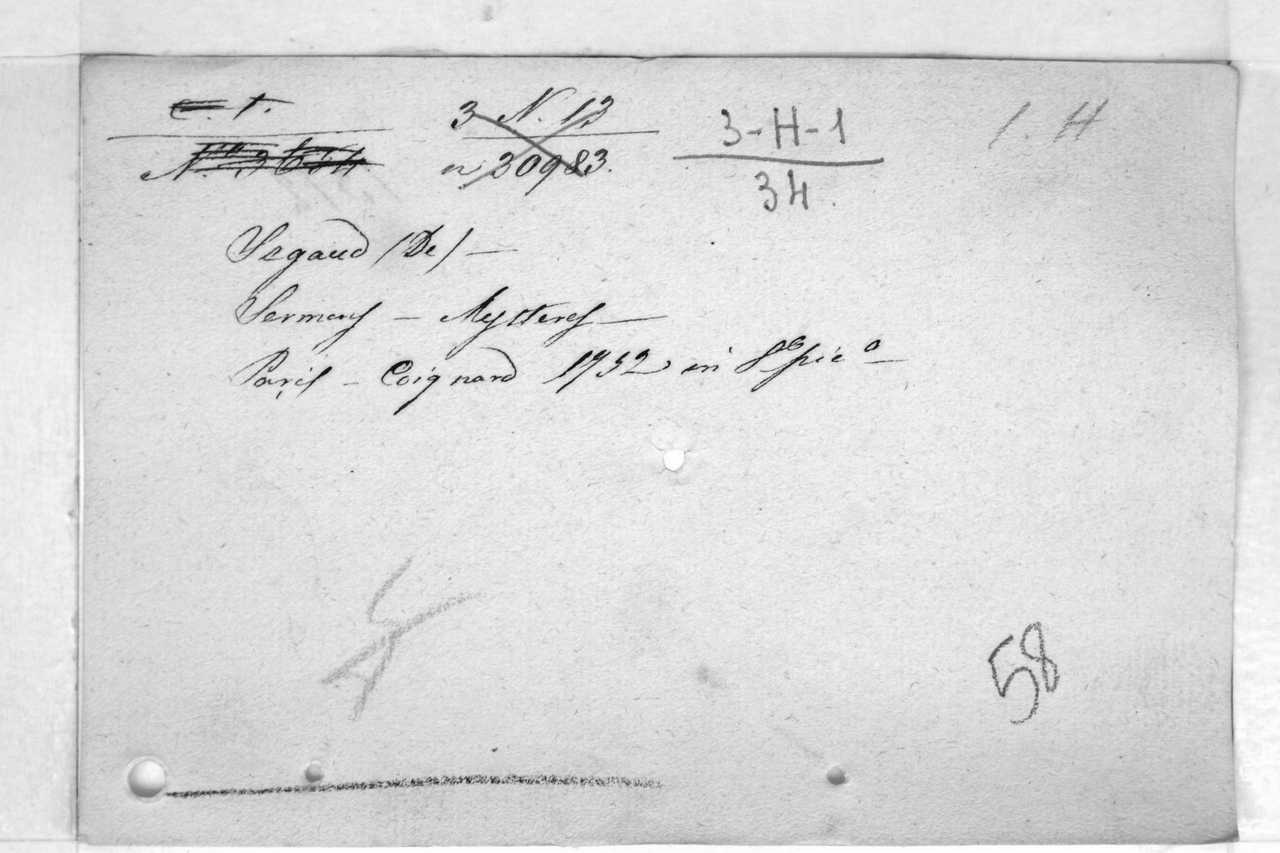 3 N. 13
n 30983.
3-H-1
34.
1. H
Segaud (De) —
Sermons — Mysteres —
Paris — Coignard 1732 in 8°
58